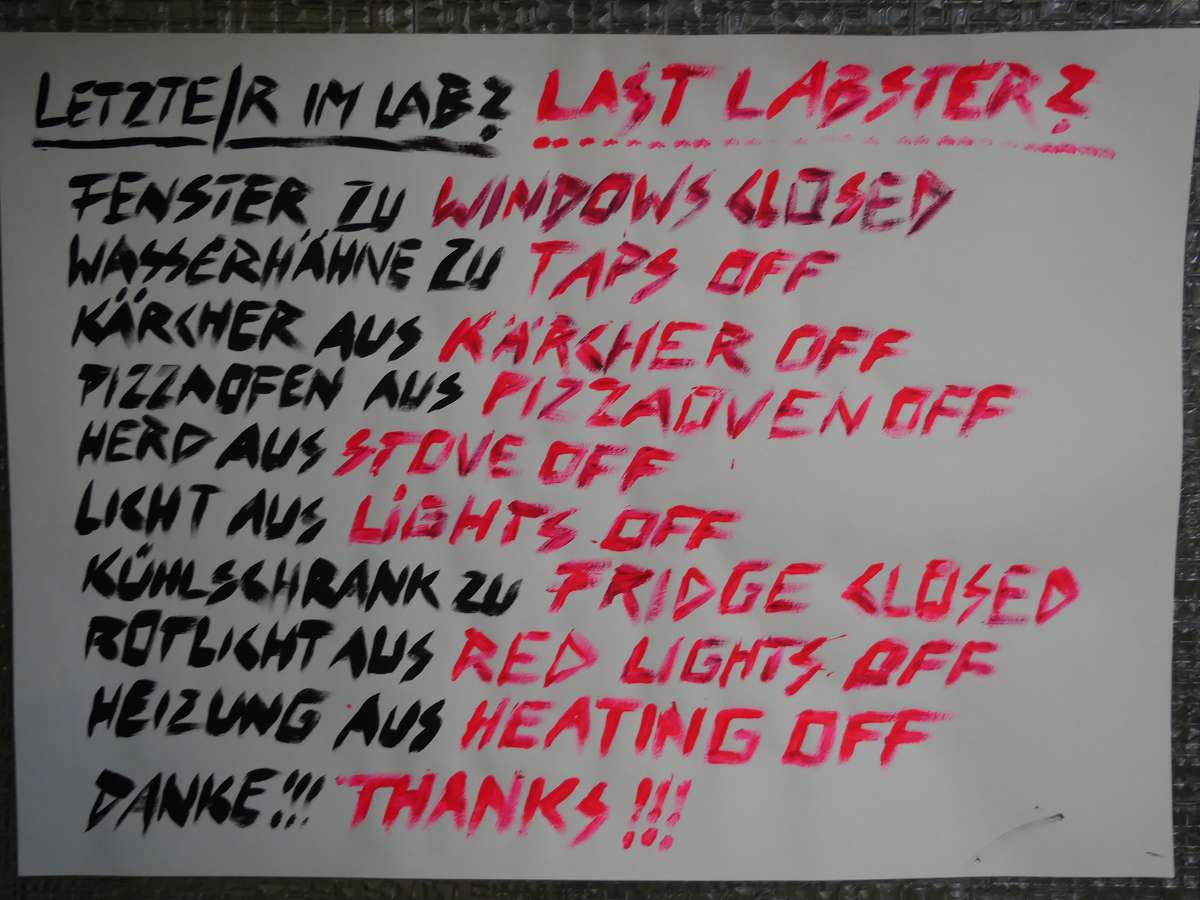 LETZTE/R IM LAB? LAST LABSTER?
FENSTER ZU WINDOWS CLOSED
WASSERHÄHNE ZU TAPS OFF
KÄRCHER AUS KÄRCHER OFF
PIZZAOFEN AUS PIZZAOVEN OFF
HERD AUS STOVE OFF
LICHT AUS LiGHTS OFF
KÜHLSCHRANK ZU FRIDGE CLOSED
ROTLICHT AUS RED LIGHTS OFF
HEIZUNG AUS HEATING OFF
DANKE!!! THANKS!!!